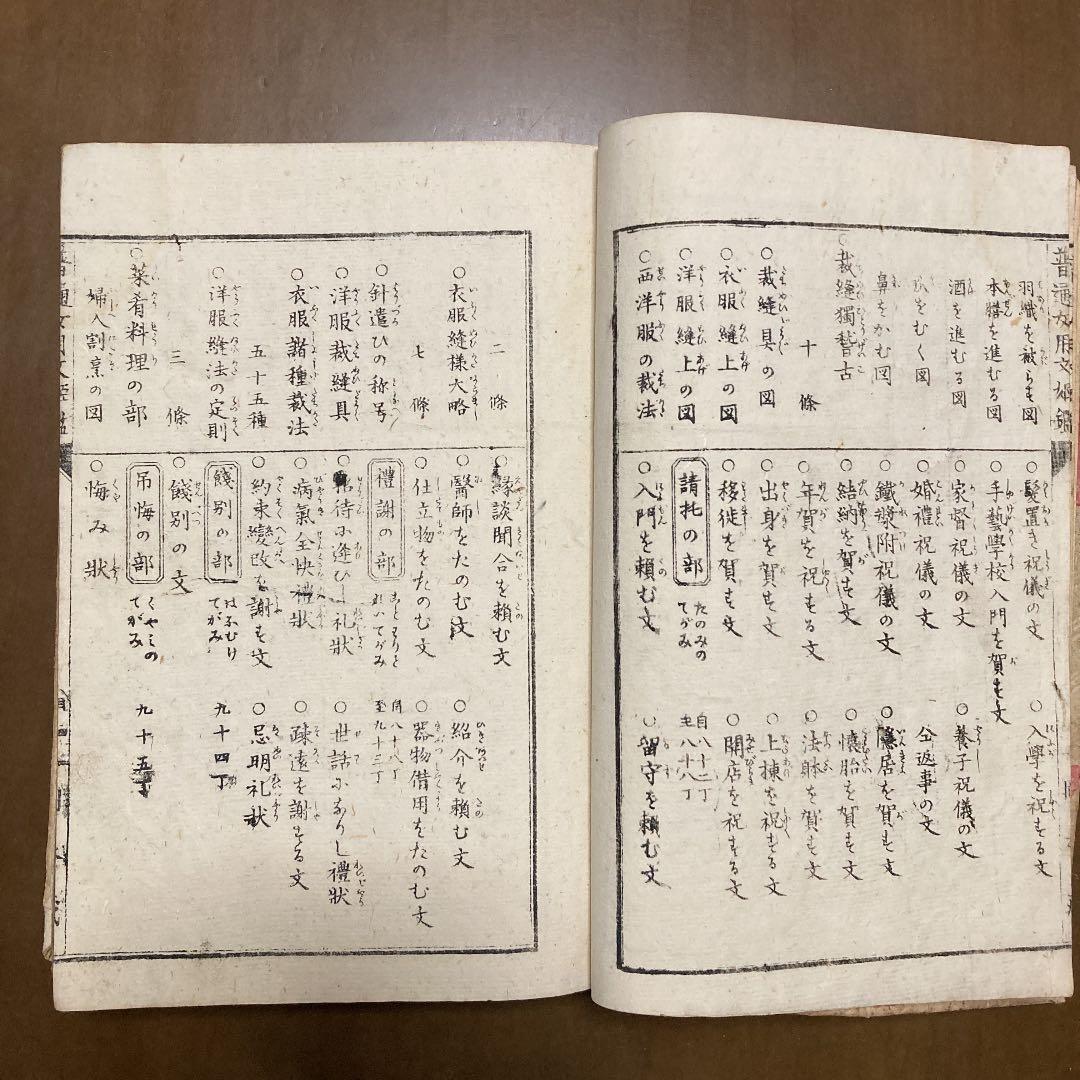 羽織を被らす図
本膳を進むる図
酒を進むる図
をむく図
鼻をかむ図
○裁縫獨稽古
十條
○裁縫具の図
○衣服縫上の図
○洋服縫上の図
○西洋服の裁法
○髪置き祝儀の文
○入學を祝する文
○手藝學校入門を賀す文
○家督祝儀の文
○養子祝儀の文
○婚禮祝儀の文
仝返事の文
○鐵漿附祝儀の文
○隱居を賀す文
○結納を賀す文
○懐胎を賀す文
○年賀を祝する文
○法躰を賀す文
○出身を賀す文
○上棟を祝する文
○移徙を賀す文
○開店を祝する文
請托の部
たのみのてがみ
自八十二丁
至八十八丁
○入門を賴む文
○留守を賴む文
二條
○衣服縫様大略
七條
○針遣ひの称号
○洋服裁縫具
○衣服諸種裁法
五十五種
○洋服縫法の定則
三條
○菜肴料理の部
婦人割烹の図
○縁談聞合を賴む文
○醫師をたのむ文
○紹介を賴む文
○仕立物をたのむ文
○器物借用をたのむ文
禮謝の部
ことわりとれいてがみ
自八十八丁
至九十三丁
○招待に逢ひし礼状
○世話になりし禮状
○病氣全快禮狀
○疎遠を謝する文
○約束變改を謝す文
○忌明礼状
餞別の部
はなむけてがみ
九十四丁
○餞別の文
吊悔の部
くやみのてがみ
九十五丁
○悔み狀